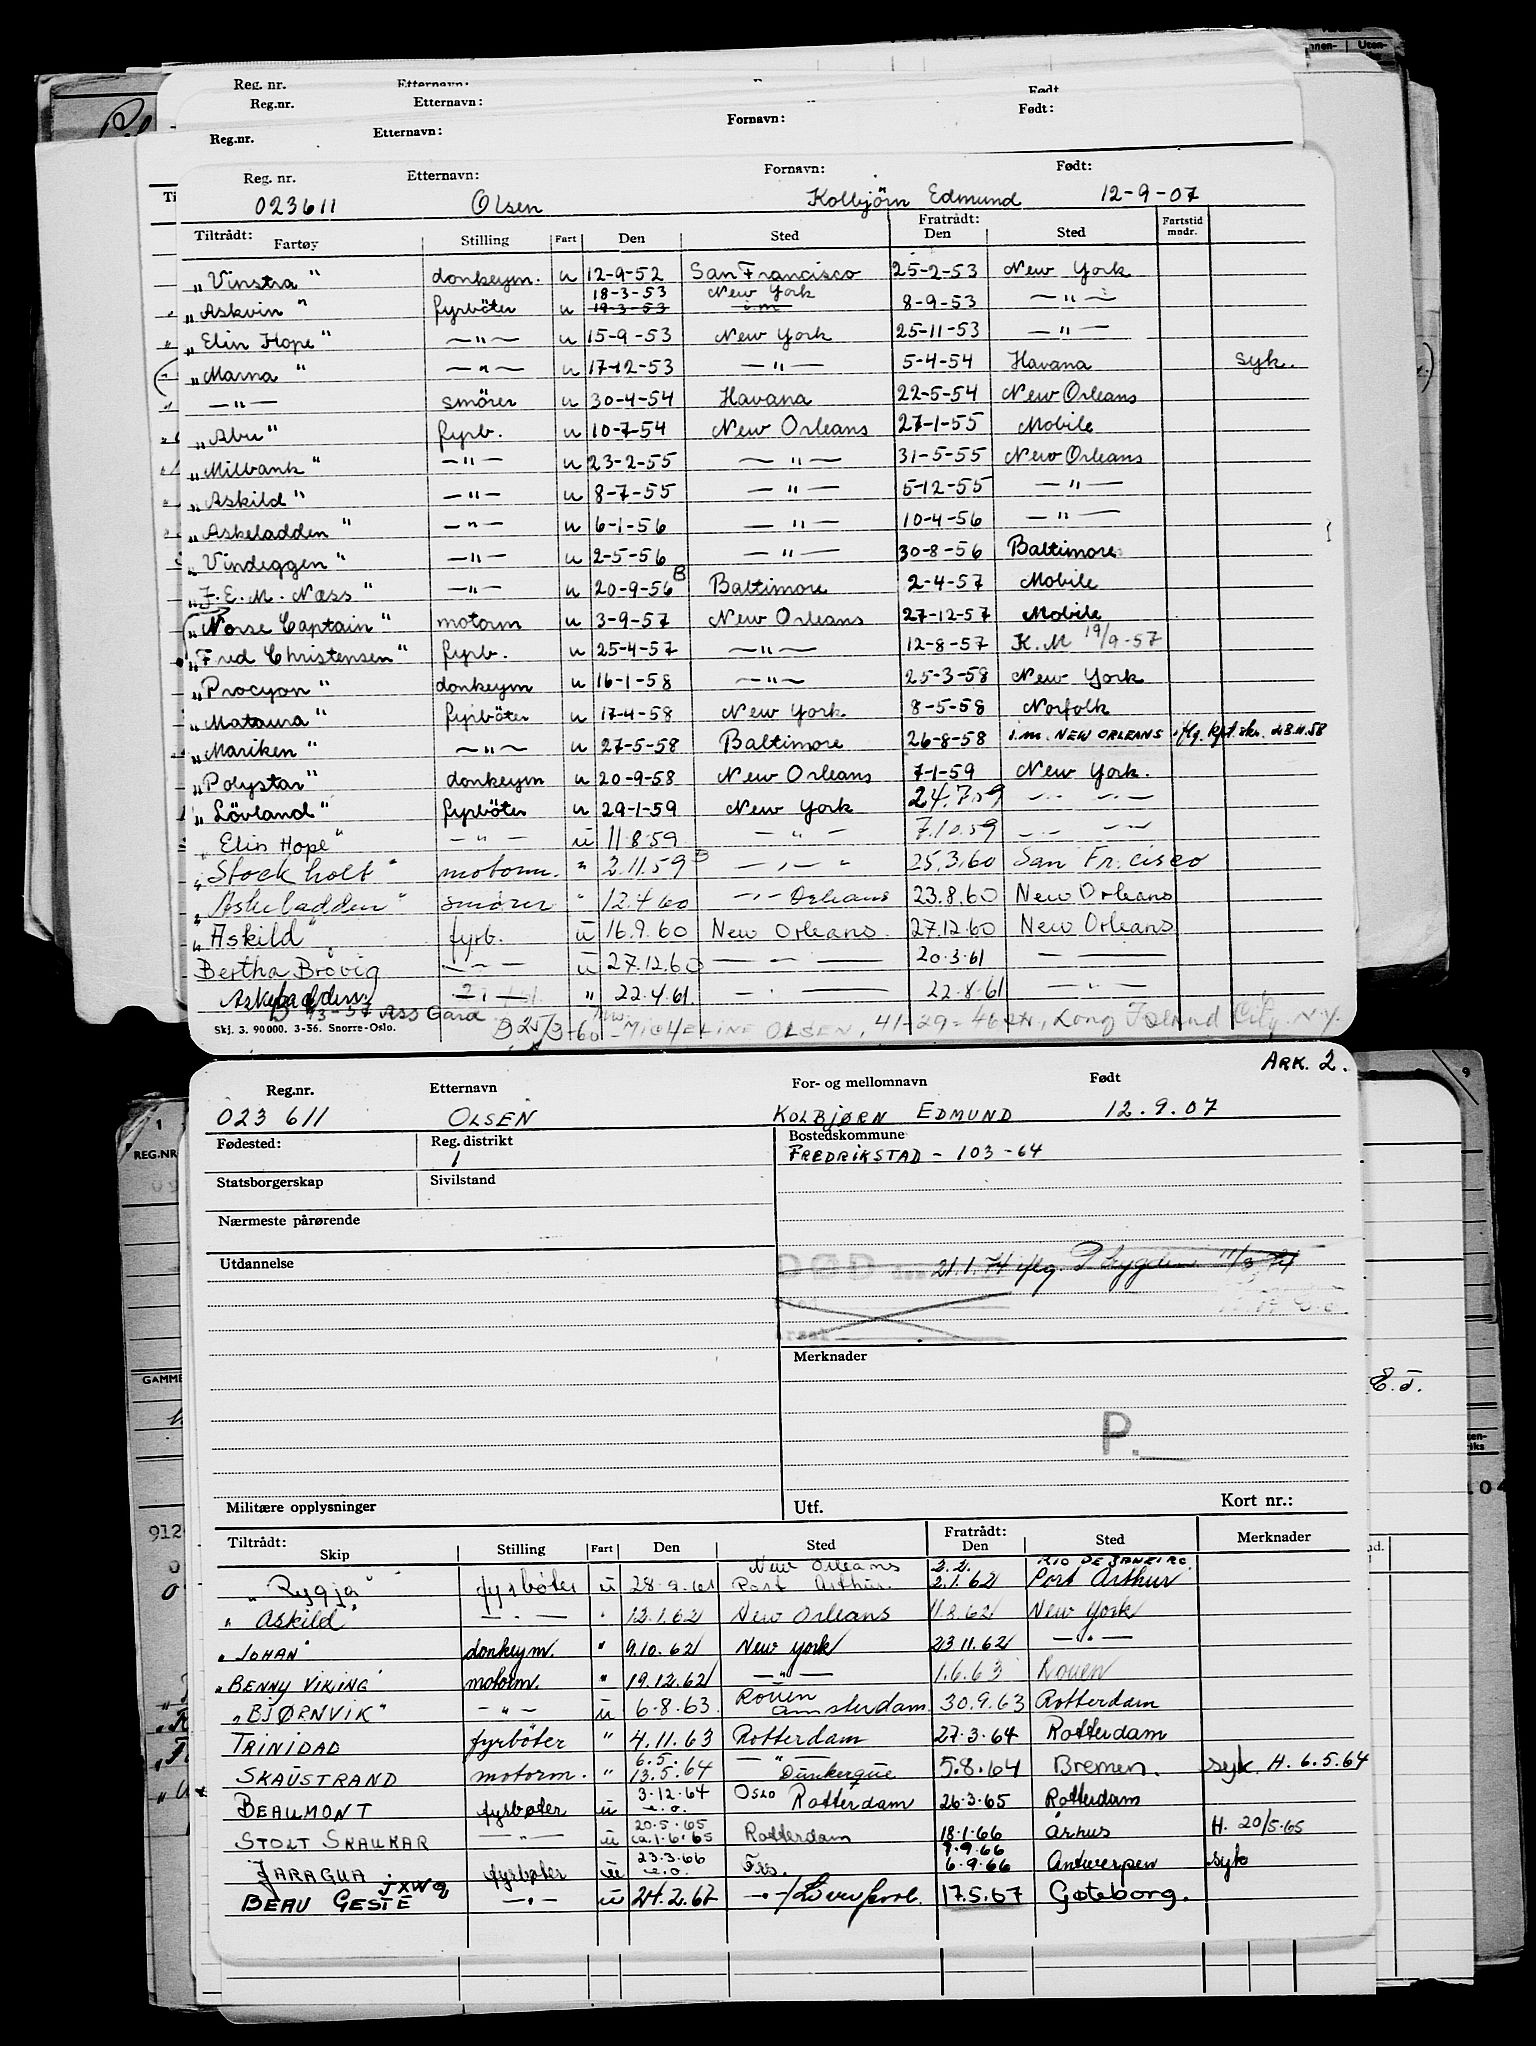 Reg. nr. Etternavn: Født
Reg.nr. Etternavn: Født:
Reg.nr. Etternavn: Fornavn:
Reg. nr. Etternavn: Fornavn: Født:
023611 Olsen Kolbjörn Edmund 12-9-07
Tiltrådt: Fartøy Stilling Fart Den Sted Fratrådt: Den Sted Fartstid mndr.
„Vinstra" donkeym. u 12-9-52 San Francisco 25-2-53 New York
„Askvin" fyrböter u 18-3-53 19-3-53 New York i.m 8-9-53 — " —
„Elin Hope" — " — u 15-9-53 New York 25-11-53 — " —
„Marna" — " — u 17-12-53 — " — 5-4-54 Havana syk.
— " — smörer u 30-4-54 Havana 22-5-54 New Orleans
„Abu" fyrb. u 10-7-54 New Orleans 27-1-55 Mobile
„Milbank" — " — u 23-2-55 — " — 31-5-55 New Orleans
„Askild" — " — u 8-7-55 — " — 5-12-55 — " —
„Askeladden" — " — u 6-1-56 — " — 10-4-56 — " —
„Vindeggen" — " — u 2-5-56 — " — 30-8-56 Baltimore
„J.E.M. Næss" — " — u 20-9-56 B Baltimore 2-4-57 Mobile
„Norse Captain" motorm u 3-9-57 New Orleans 27-12-57 Mobile
„Fred Christensen" fyrb. u 25-4-57 — " — 12-8-57 K.M 19/9-57
„Procyon" donkeym u 16-1-58 — " — 25-3-58 New York
„Mataura" fyrböter u 17-4-58 New York 8-5-58 Norfolk
„Mariken" — " — u 27-5-58 Baltimore 26-8-58 i.m. NEW ORLEANS iflg. kpt. skr. 28.11.58
„Polystar" donkeym u 20-9-58 New Orleans 7-1-59 New York.
„Lövland" fyrböter u 29-1-59 New York 24.7.59 — " —
„Elin Hope" — " — ū 11.8.59 — " — 7.10.59 — " —
„Stockholt" motorm. " 2.11.59 B — " — 25.3.60 San Fr.cisco
„Askeladden" smörer " 12.4.60 — " — Orleans 23.8.60 New Orleans
„Askild" fyrb. ū 16.9.60 New Orleans 27.12.60 New Orleans
Bertha Brövig — " — ū 27.12.60 — " — 20.3.61 — " —
Askeladden — " — " 22.4.61 — " — 22.8.61 — " —
Ass Gard
Skj. 3. 90000. 3-56. Snorre-Oslo. B 25/3-60 MICHELINE OLSEN, 41-29=46 str., Long Island City. N.Y.
ARK. 2.
Reg.nr. Etternavn For- og mellomnavn Født
023 611 OLSEN KOLBJØRN EDMUND 12.9.07
Fødested: Reg. distrikt 1 Bostedskommune
FREDRIKSTAD - 103-64
Statsborgerskap Sivilstand
Nærmeste pårørende
Utdannelse
DØD 21.1.74 iflg. P. trygden 11/3 74
Merknader
P.
Militære opplysninger Utf. Kort nr.:
Tiltrådt: Skip Stilling Fart Den Sted Fratrådt: Den Sted Merknader
„Rygja" fyrbøter ū 28.9.61 New Orleans Port Arthur. 2.2. 2.1.62 RIO DE JANEIRO Port Arthur
„Askild" — " — " 12.1.62 New Orleans 11.8.62 New York
„JOHAN" donkeym. " 9.10.62 New York 23.11.62 — " —
„BENNY VIKING" motorm. " 19.12.62 — " — 1.6.63 Rouen
„BJØRNVIK" — " — ū 6.8.63 Rouen Amsterdam 30.9.63 Rotterdam
TRINIDAD fyrböter " 4.11.63 Rotterdam 27.3.64 Rotterdam
SKAUSTRAND motorm. " 6.5. 13.5.64 — " — Dunkerque 5.8.64 Bremen. syk. H. 6.5.64
BEAUMONT fyrbøter ū 3.12.64 e.o. Oslo Rotterdam 26.3.65 Rotterdam
STOLT SKAUKAR — " — ū 20.5.65 ca.1.6.65 Rotterdam 18.1.66 Århus H. 20/5.65
JARAGUA fyrbøter ū 23.3.66 e.o. Frs. 9.9.66 6.9.66 Antwerpen syk
BEAU GESTE JXWQ — " — ū 24.2.67 — " — / Liverpool. 17.5.67 Gøteborg.
REG.NR
GAMME
912
E.T.
9